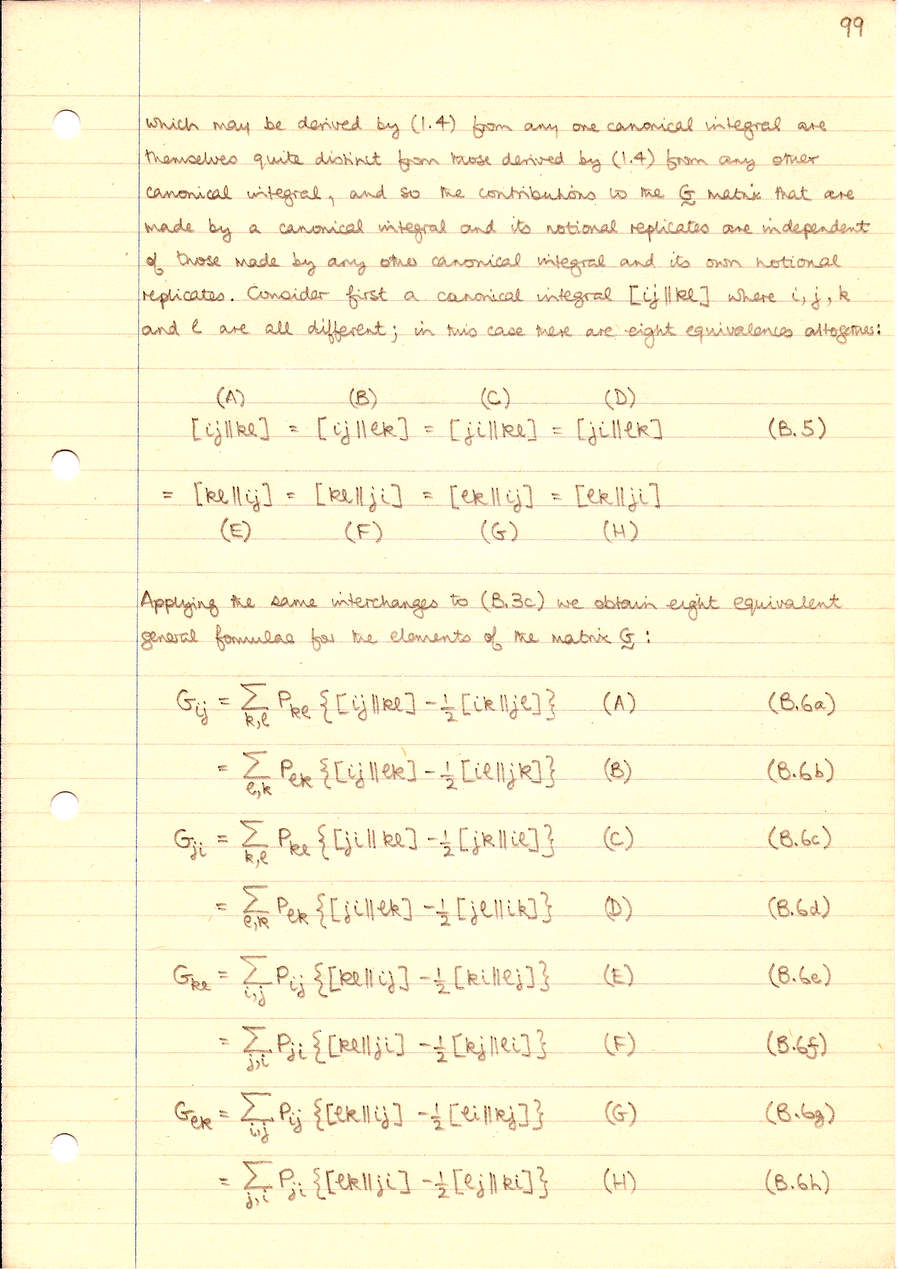 99
which may be derived by (1.4) from any one canonical integral are
themselves quite distinct from those derived by (1.4) from any other
canonical integral, and so the contributions to the G matrix that are
made by a canonical integral and its notional replicates are independent
of those made by any other canonical integral and its own notional
replicates. Consider first a canonical integral [ij||kl] where i, j, k
and l are all different; in this case there are eight equivalences altogether:
(A) (B) (C) (D)
[ij||kl] = [ij||lk] = [ji||kl] = [ji||lk] (B.5)
= [kl||ij] = [kl||ji] = [lk||ij] = [lk||ji]
(E) (F) (G) (H)
Applying the same interchanges to (B.3c) we obtain eight equivalent
general formulae for the elements of the matrix G:
G_ij = ∑_k,l P_kl {[ij||kl] - ½[ik||jl]} (A) (B.6a)
= ∑_l,k P_lk {[ij||lk] - ½[il||jk]} (B) (B.6b)
G_ji = ∑_k,l P_kl {[ji||kl] - ½[jk||il]} (C) (B.6c)
= ∑_l,k P_lk {[ji||lk] - ½[jl||ik]} (D) (B.6d)
G_kl = ∑_i,j P_ij {[kl||ij] - ½[ki||lj]} (E) (B.6e)
= ∑_j,i P_ji {[kl||ji] - ½[kj||li]} (F) (B.6f)
G_lk = ∑_i,j P_ij {[lk||ij] - ½[li||kj]} (G) (B.6g)
= ∑_j,i P_ji {[lk||ji] - ½[lj||ki]} (H) (B.6h)